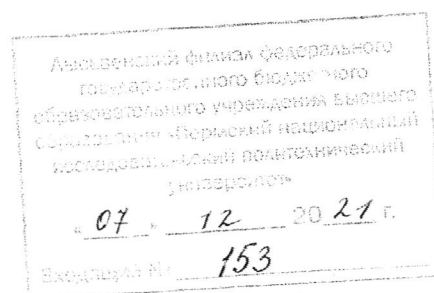 Лысьвенский филиал федерального
государственного бюджетного
образовательного учреждения высшего
образования «Пермский национальный
исследовательский политехнический
университет»
« 07 » 12 20 21 г.
Входящий № 153